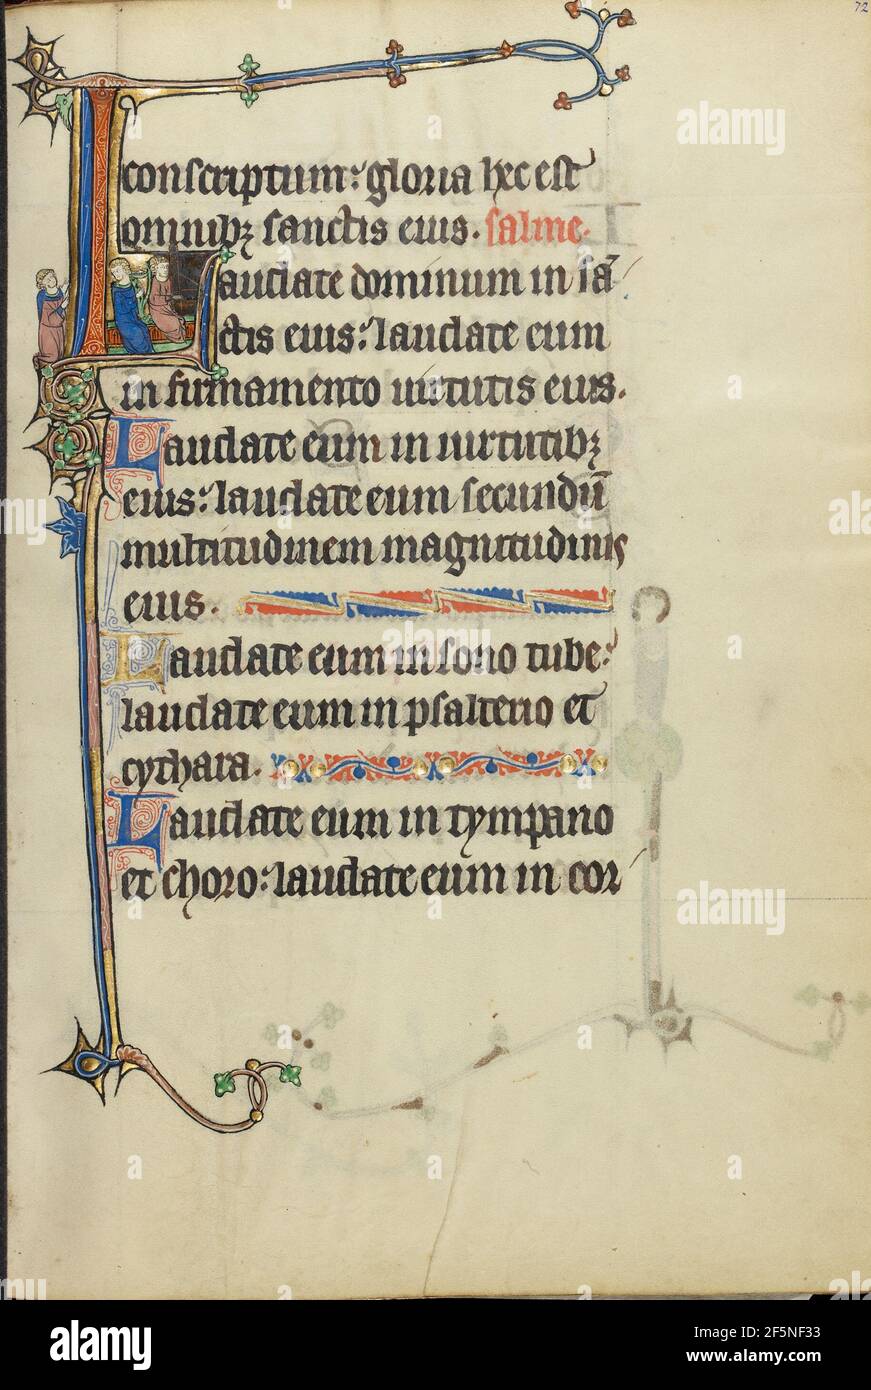 72
conscriptum: gloria hec est
omnibꝫ sanctis eius. salme.
Laudate dominum in sā
ctis eius: laudate eum
in firmamento uirtutis eius.
Laudate eum in uirtutibꝫ
eius: laudate eum secundū
multitudinem magnitudinis
eius.
Laudate eum in sono tube:
laudate eum in psalterio et
cythara.
Laudate eum in tympano
et choro: laudate eum in cor
alamy
Image ID: 2F5NF33
www.alamy.com